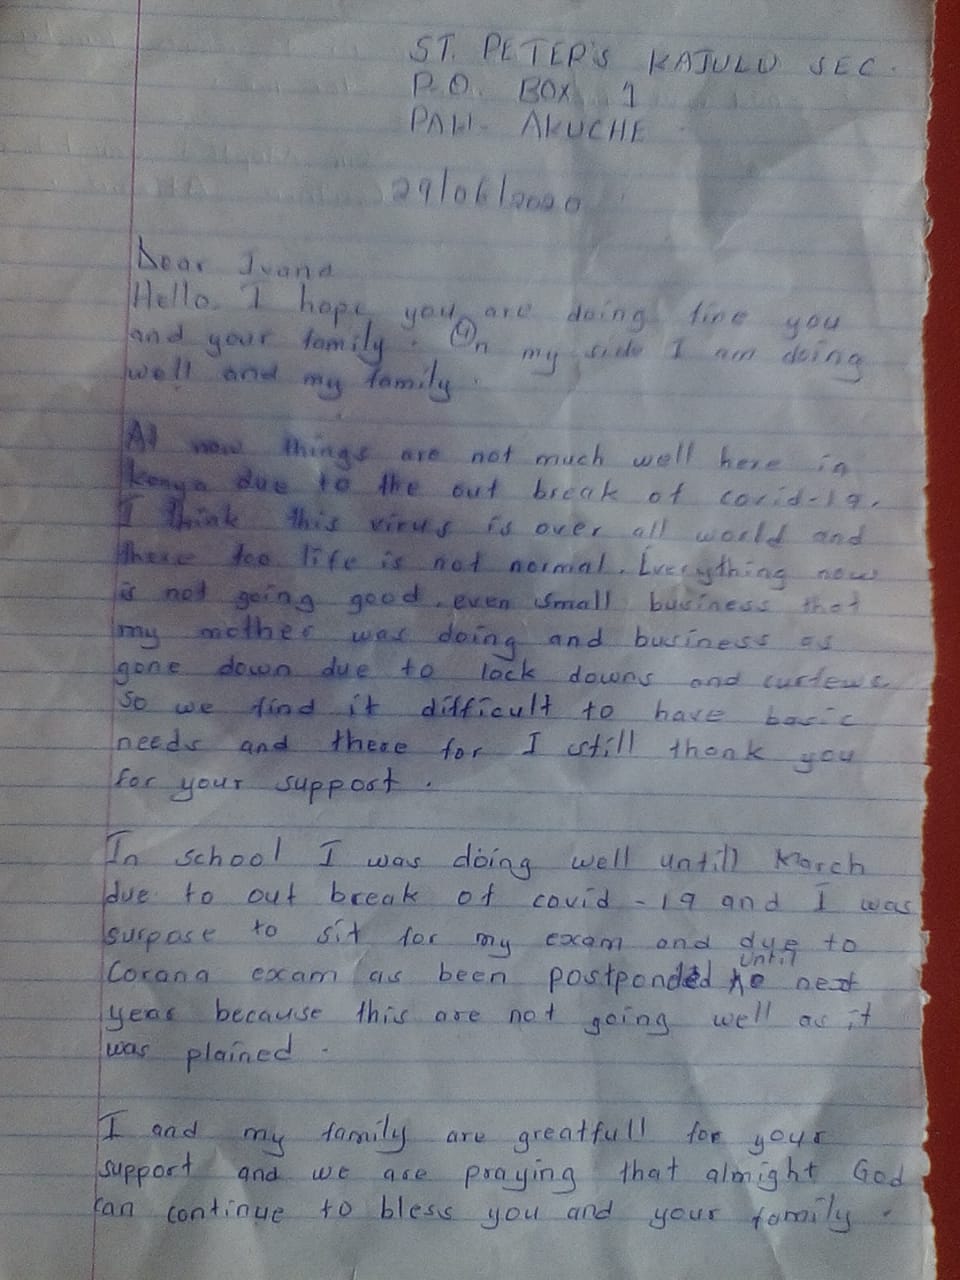 ST. PETER'S KAJULU SEC.
P.O. BOX 1
PAW AKUCHE
29/06/2020
Dear Ivana
Hello. I hope you are doing fine you
and your family. On my side I am doing
well and my family.
At now things are not much well here in
kenya due to the out break of covid-19.
I think this virus is over all world and
there too life is not normal. Everything now
is not going good. even small business that
my mother was doing and business as
gone down due to lock downs and curfews
so we find it difficult to have basic
needs and there for I still thank you
for your support.
In school I was doing well untill March
due to out break of covid-19 and I was
surpose to sit for my exam and due to
until
Corona exam as been postponded next
year because this are not going well as it
was plained.
I and my family are greatfull for your
support and we are praying that almight God
can continue to bless you and your family.